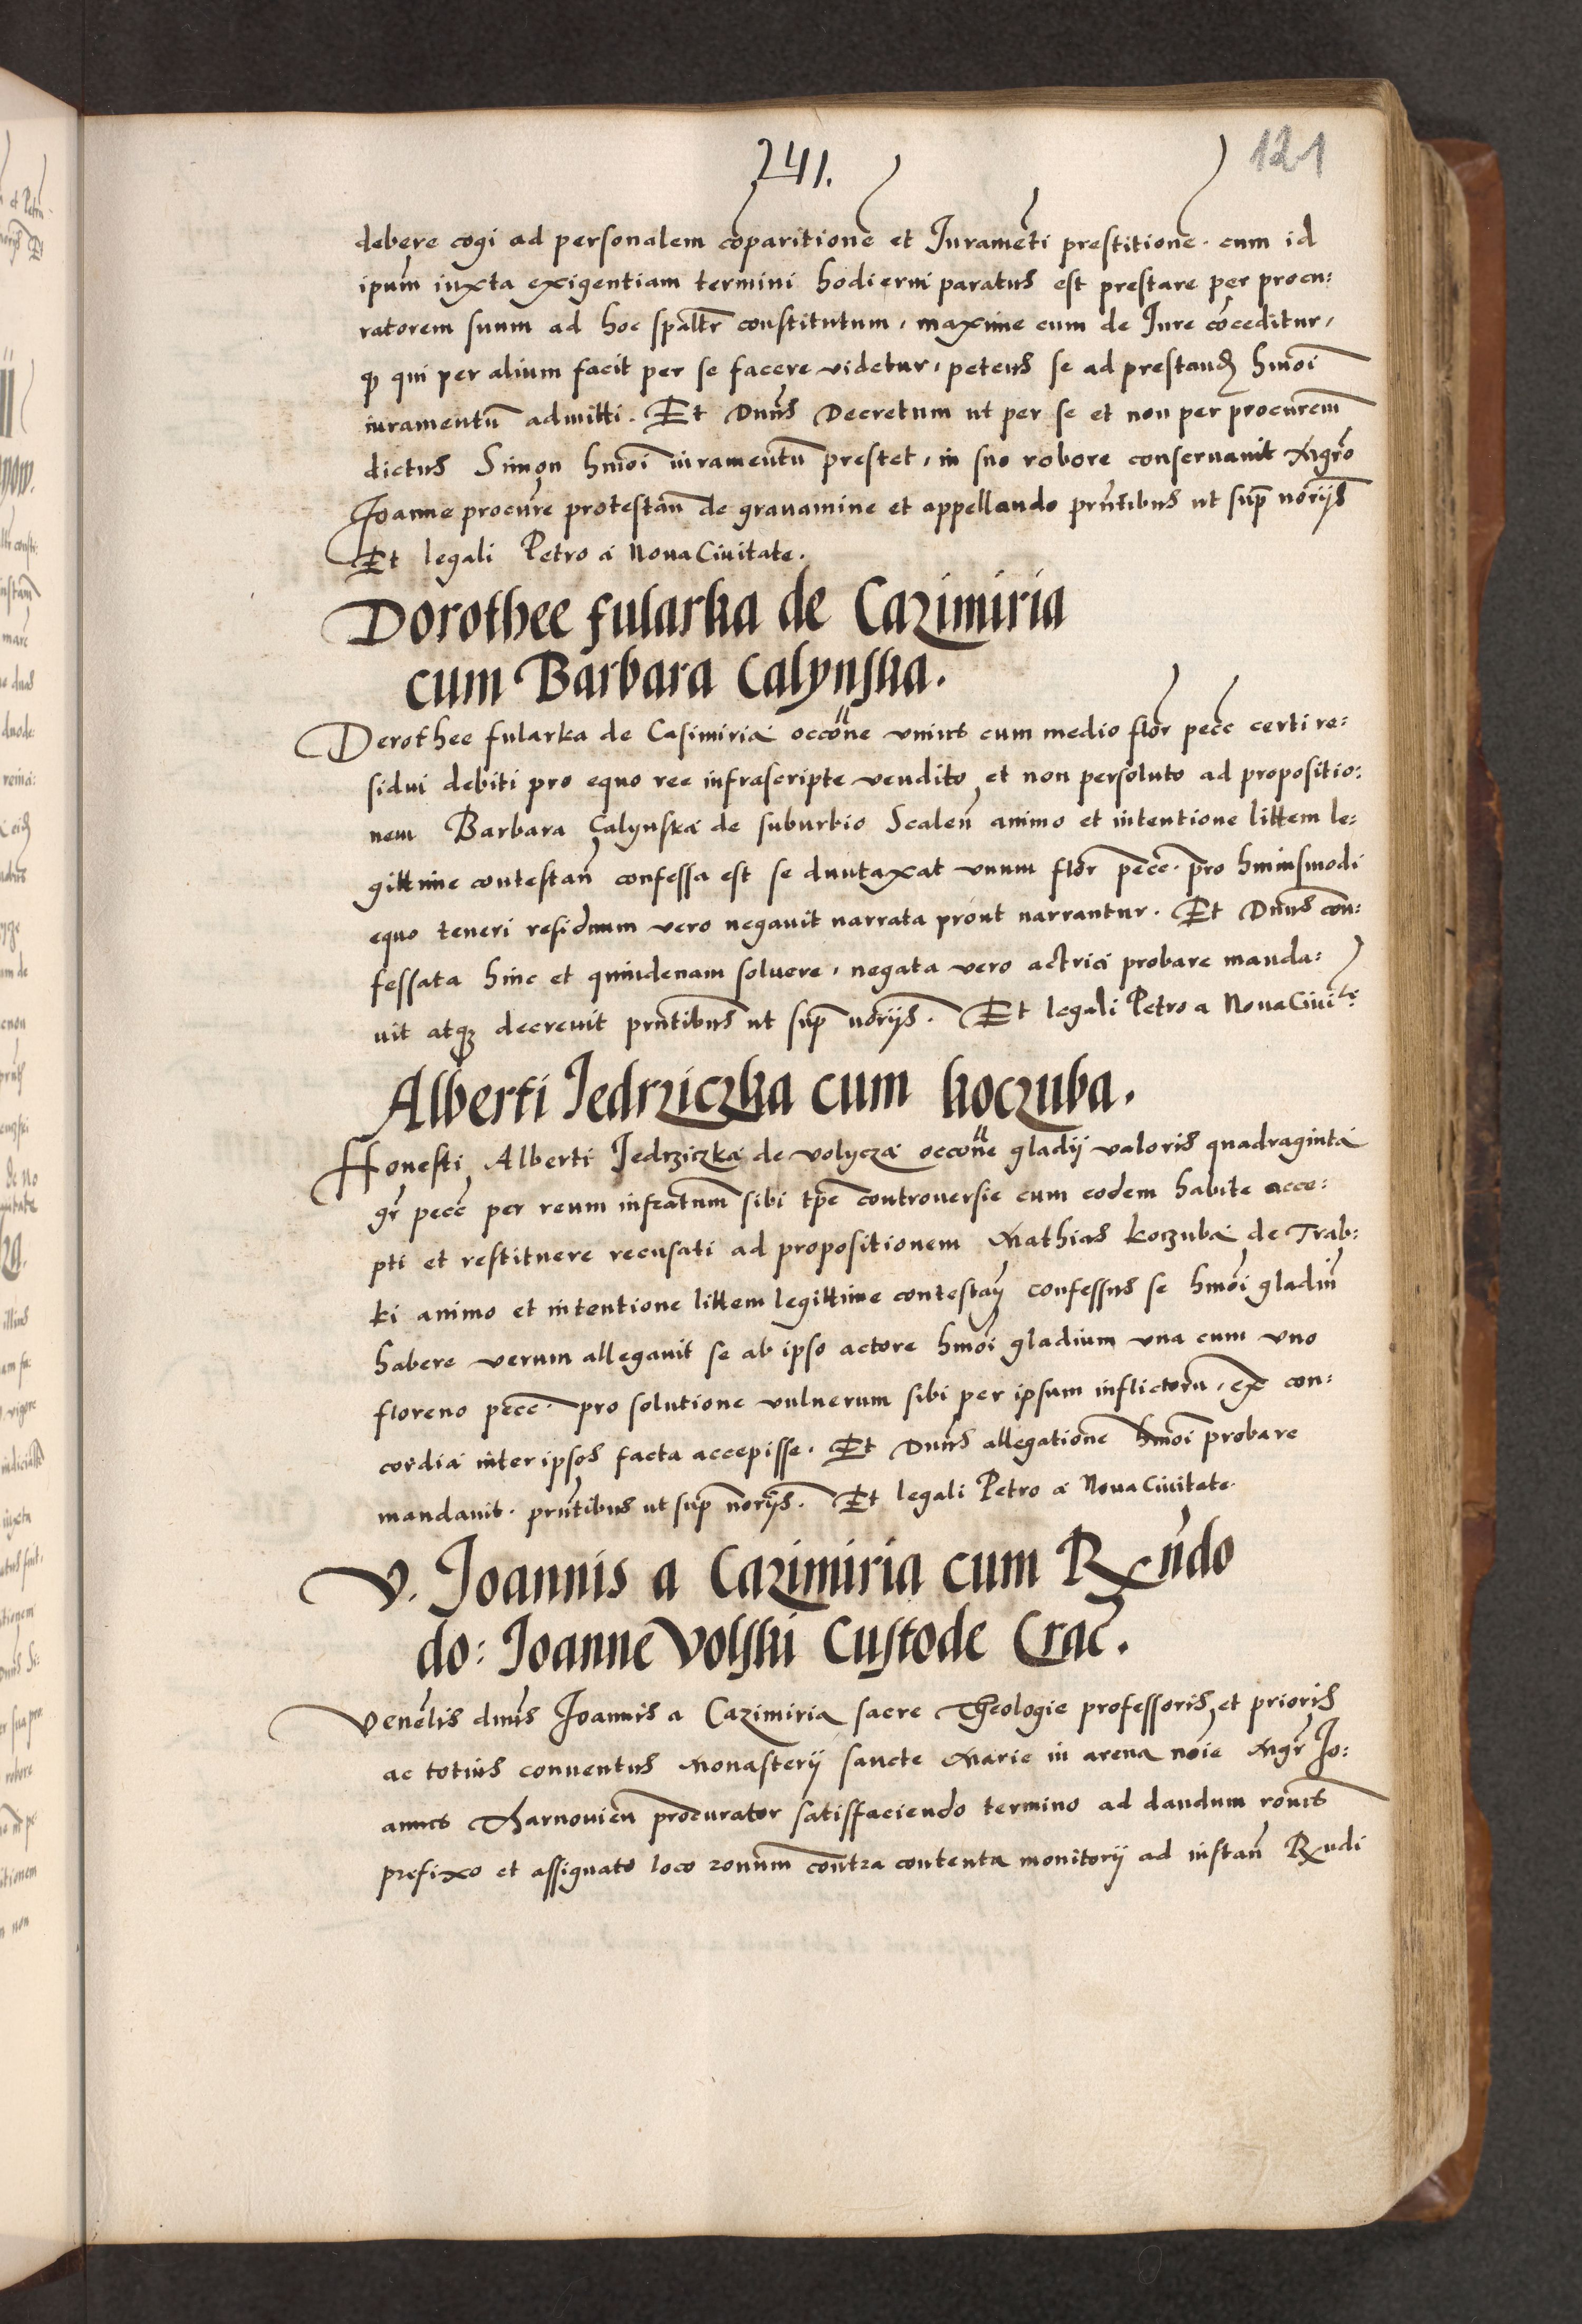 241.
121
debere cogi ad personalem cōparitionē et Iuramēti prestitionē. cum id
ipum̄ iuxta exigentiam termini hodierni paratus est prestare per procu:
ratorem suum ad hoc spāltr constitutum, maxime cum de Iure cōceditur,
ꝙ qui per alium facit per se facere videtur, petens se ad prestand hmōi
iuramentū admitti. Et Dn̄us Decretum ut per se et non per procurem̄
dictus Simon hmōi iuramentū prestet, in suo robore conseruauit Mgrō
Joanne procurē protestan̄ de grauamine et appellando prn̄tibus ut sup̄ norijs̄
Et legali Petro a Noua Ciuitate.
Dorothee fularka de Cazimiria
cum Barbara Calynska.
Dorothee fularka de Casimiria occōne vnius cum medio flōr pecc̄ certi re:
sidui debiti pro equo ree infrascripte vendito et non persoluto ad propositio:
nem Barbara Calynska de suburbio Scalen̄ animo et intentione littem le:
gittime contestan̄ confessa est se duntaxat vnum flōr pecc̄. pro hmiusmodi
equo teneri residuum vero negauit narrata prout narrantur. Et Dn̄us con:
fessata hinc et quindenam soluere, negata vero actrici probare manda:
uit atqꝫ decreuit prn̄tibus ut sup̄ norijs̄. Et legali Petro a Noua Ciuite
Alberti Iedrziczka cum koczuba.
Honesti Alberti Jedrziczka de volycza occōne gladij valoris quadraginta
gr̄ pecc̄ per reum infratum̄ sibi tpe controuersie cum eodem habite acce:
pti et restituere recusati ad propositionem Mathias koczuba de Trab:
ki animo et intentione littem legittime contestan̄ confessus se hmōi gladiū
habere verum allegauit se ab ipso actore hmōi gladium vna cum vno
floreno pecc̄. pro solutione vulnerum sibi per ipsum inflictorū, ex con:
cordia inter ipsos facta accepisse. Et Dn̄us allegationē hmōi probare
mandauit. prn̄tibus ut sup̄ norijs̄. Et legali Petro a Noua Ciuitate.
V. Joannis a Cazimiria cum Rxn̄do
do: Ioanne Volski Custode Crac̄.
Venēlis dn̄us Joannis a Cazimiria sacre Theologie professoris et prioris
ac totius conuentus Monasterij sancte Marie in arena nōie Mgr̄ Jo:
annes Tharnouien̄ procurator satisfaciendo termino ad dandum ronēs
prefixo et assignato loco ronum̄ contra contenta monitorij ad instan̄ Rxndi